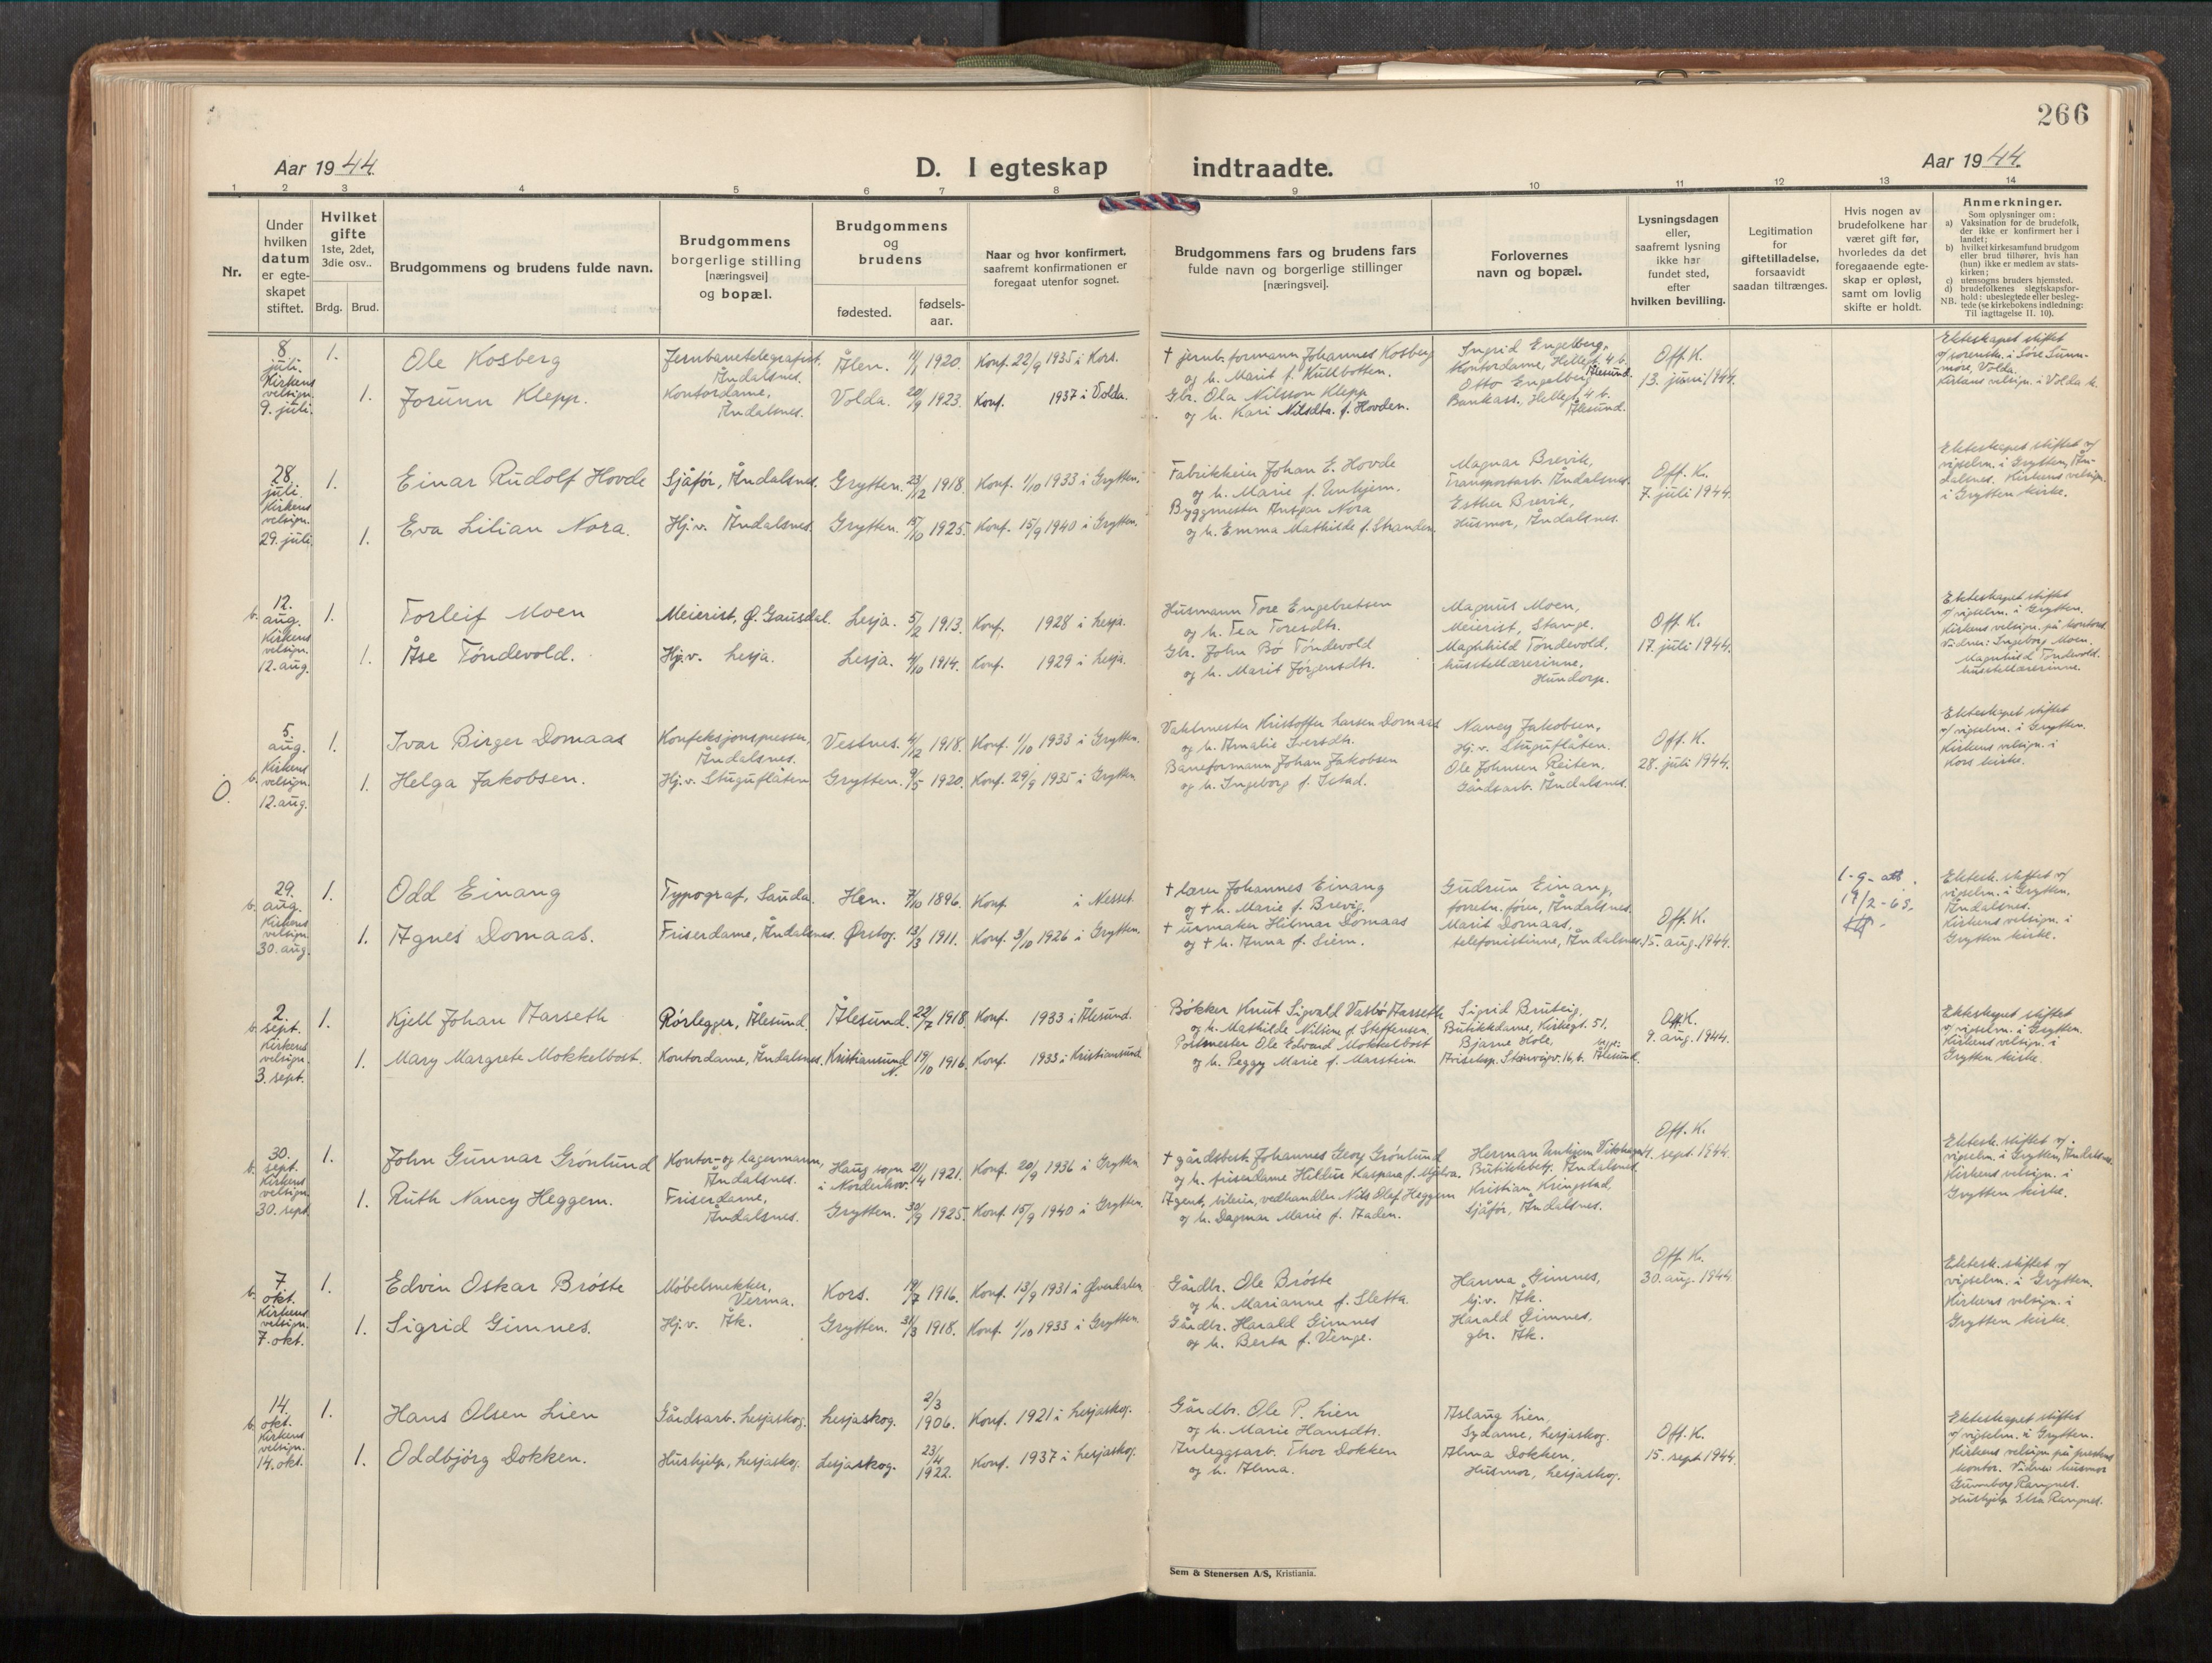 266
Aar 1944.
D. I egteskap indtraadte.
Aar 1944.
1 2 3 4 5 6 7 8 9 10 11 12 13 14
Nr.
Under hvilken datum er egte-
skapet stiftet.
Hvilket gifte
1ste, 2det, 3die osv..
Brdg. Brud.
Brudgommens og brudens fulde navn.
Brudgommens borgerlige stilling
[næringsvei]
og bopæl.
Brudgommens og brudens
fødested.
fødsels-
aar.
Naar og hvor konfirmert,
saafremt konfirmationen er
foregaat utenfor sognet.
Brudgommens fars og brudens fars
fulde navn og borgerlige stillinger
[næringsvei].
Forlovernes
navn og bopæl.
Lysningsdagen
eller,
saafremt lysning
ikke har
fundet sted,
efter
hvilken bevilling.
Legitimation
for
giftetilladelse,
forsaavidt
saadan tiltrænges.
Hvis nogen av
brudefolkene har
været gift før,
hvorledes da det
foregaaende egte-
skap er opløst,
samt om lovlig
skifte er holdt.
Anmerkninger.
Som oplysninger om:
a) Vaksination for de brudefolk,
der ikke er konfirmert her i
landet;
b) hvilket kirkesamfund brudgom
eller brud tilhører, hvis han
(hun) ikke er medlem av stats-
kirken;
c) utensogns bruders hjemsted.
d) brudefolkenes slegtskapsfor-
hold: ubeslegtede eller besleg-
NB. tede (se kirkebokens indledning:
Til iagttagelse II. 10).
8. juli. Kirkens velsign. 9. juli.
1. Ole Kosberg
Jernbanetelegrafist. Åndalsnes.
Ålen. 1920. Konf. 22/9 1935 i Kors.
† jernb. formann Johannes Kosberg
og h. Marit f. Kullbotten.
Ingrid Engelberg.
Kontordame, Hellegt. 4 b. Ålesund.
Off. K.
13. juni 1944.
1. Jorunn Klepp.
Kontordame, Åndalsnes.
Volda. 20/9 1923. Konf. 1937 i Volda.
Gbr. Ola Nilsson Klepp
og h. Kari Nilsdtr. f. Hovden.
Otto Engelberg
Bankass., Hellegt. 4 b. Ålesund.
Ekteskapet stiftet
v/ sorenskr. i Søre Sunn-
møre, Volda.
Kirkens velsign. i Volda k.
28. juli. Kirkens velsign. 29. juli.
1. Einar Rudolf Hovde
Sjåfør, Åndalsnes.
Grytten. 23/12 1918. Konf. 1/10 1933 i Grytten.
Fabrikkeier Johan E. Hovde
og h. Marie f. Unhjem.
Magnar Brevik,
Transportarb. Åndalsnes.
Off. K.
7. juli 1944.
1. Eva Lilian Nora.
Hj.v. Åndalsnes.
Grytten. 15/10 1925. Konf. 15/9 1940 i Grytten.
Byggmester Ansgar Nora
og h. Emma Mathilde f. Stranden
Esther Brevik,
Husmor, Åndalsnes.
Ekteskapet stiftet v/
vigselm. i Grytten, Ån-
dalsnes. Kirkens velsign.
i Grytten kirke.
b. 12. aug. Kirkens velsign. 12. aug.
1. Torleif Moen
Meierist, Ø. Gausdal.
Lesja. 5/2 1913. Konf. 1928 i Lesja.
Husmann Tore Engebretsen
og h. Tea Toresdtr.
Magnus Moen,
Meierist, Stange.
Off. K.
17. juli 1944.
1. Åse Tøndevold.
Hj.v. Lesja.
Lesja. 4/10 1914. Konf. 1929 i Lesja.
Gbr. John Bø Tøndevold
og h. Marit Jørgensdtr.
Maghild Tøndevold,
husstellærerinne,
Hundorp.
Ekteskapet stiftet
v/ vigselm. i Grytten.
Kirkens velsign. på kontoret.
Vidner: Ingeborg Moen.
Magnhild Tøndevold.
husstellærerinne.
O. b. 5. aug. Kirkens velsign. 12. aug.
1. Ivar Birger Domaas
Konfeksjonspresser, Åndalsnes.
Vestnes. 4/12 1918. Konf. 1/10 1933 i Grytten.
Vaktmester Kristoffer Larsen Domaas
og h. Amalie Iversdtr.
Nancy Jakobsen,
Hj.v. Stuguflåten.
Off. K.
28. juli 1944.
1. Helga Jakobsen.
Hj.v. Stuguflåten
Grytten. 9/5 1920. Konf. 29/9 1935 i Grytten
Baneformann Johan Jakobsen
og h. Ingeborg f. Istad.
Ole Johnsen Reiten.
Gårdsarb. Åndalsnes.
Ekteskapet stiftet
v/ vigselm. i Grytten.
Kirkens velsign. i
Kors kirke.
b. 29. aug. Kirkens velsign. 30. aug.
1. Odd Einang
Typograf, Sauda.
Hen. 7/10 1896. Konf. i Nesset.
† lærer Johannes Einang
og † h. Marie f. Brevig.
Gudrun Einang,
forretn. fører, Åndalsnes.
Off. K.
15. aug. 1944.
1. Agnes Domaas.
Friserdame, Åndalsnes.
Ørskog. 13/3 1911. Konf. 3/10 1926 i Grytten.
† urmaker Hilmar Domaas
og † h. Anna f. Siem.
Marit Domaas,
telefonistinne, Åndalsnes.
1-g. att.
19/2-65.
Ektesk. stiftet v/
vigselm. i Grytten,
Åndalsnes.
Kirkens velsign. i
Grytten kirke.
b. 2. sept. Kirkens velsign. 3. sept.
1. Kjell Johan Aarseth
Rørlegger, Ålesund.
Ålesund. 22/7 1918. Konf. 1933 i Ålesund.
Bøkker Knut Sigvald Vasbø Aarseth
og h. Mathilde Nilsine f. Steffensen.
Sigrid Bruteig,
Butikkdame, Kirkegt. 51.
Off. K.
9. aug. 1944.
1. Mary Margrete Mokkelbost.
Kontordame, Åndalsnes.
Kristiansund N. 19/10 1916. Konf. 1933 i Kristiansund
Postmester Ole Edvard Mokkelbost
og h. Peggy Marie f. Marstein
Bjarne Hole,
Ålesund.
Ekteskapet stiftet
v/ vigselm. i Grytten.
Kirkens velsign. i
Grytten kirke.
b. 30. sept. Kirkens velsign. 30. sept.
1. John Gunnar Grønlund
Kontor- og lagermann, Åndalsnes.
Haug sogn i Norderhov. 21/4 1921. Konf. 20/9 1936 i Grytten
† gårdsbest. Johannes Georg Grønlund
og h. friserdame Hildur Kaspara f. Mjelva.
Herman Unhjem
Butikkbetj. Åndalsnes
Off. K.
sept. 1944.
1. Ruth Nancy Heggem.
Friserdame, Åndalsnes.
Grytten. 30/9 1925. Konf. 15/9 1940 i Grytten.
Agent, bileier, vedhandler Nils Olaf Heggem
og h. Dagmar Marie f. Aaden.
Kristian Kringstad,
Sjåfør, Åndalsnes.
Ektesk. stiftet v/
vigselm. i Grytten, Åndalsnes.
Kirkens velsign. i
Grytten kirke.
b. 7. okt. Kirkens velsign. 7. okt.
1. Edvin Oskar Brøste
Møbelsnekker, Verma.
Kors. 19/7 1916. Konf. 13/9 1931 i Øverdalen
Gårdbr. Ole Brøste
og h. Marianne f. Sletta.
Hanna Gimnes,
hj.v. Åk.
Off. K.
30. aug. 1944.
1. Sigrid Gimnes.
Hj.v. Åk.
Grytten. 31/3 1918. Konf. 1/10 1933 i Grytten.
Gårdbr. Harald Gimnes
og h. Berta f. Venge.
Harald Gimnes,
gbr. Åk.
Ektesk. stiftet v/
vigselm. i Grytten.
Kirkens velsign. i
Grytten kirke.
b. 14. okt. Kirkens velsign. 14. okt.
1. Hans Olsen Lien
Gårdsarb. Lesjaskog.
Lesjaskog. 2/3 1906. Konf. 1921 i Lesjaskog.
Gårdbr. Ole P. Lien
og h. Marie Hansdtr.
Aslaug Lien,
Sydame, Lesjaskog.
Off. K.
15. sept. 1944.
1. Oddbjørg Dokken.
Hushjelp, Lesjaskog.
Lesjaskog. 23/4 1922. Konf. 1937 i Lesjaskog.
Anleggsarb. Thor Dokken
og h. Alma.
Alma Dokken,
Husmor, Lesjaskog.
Ekteskapet stiftet
v/ vigselm. i Grytten.
Kirkens velsign. på prestens
kontor. Vidner husmor
Gunnborg Rangnes.
Hushjelp Elsa Rangnes.
Sem & Stenersen A/S, Kristiania.